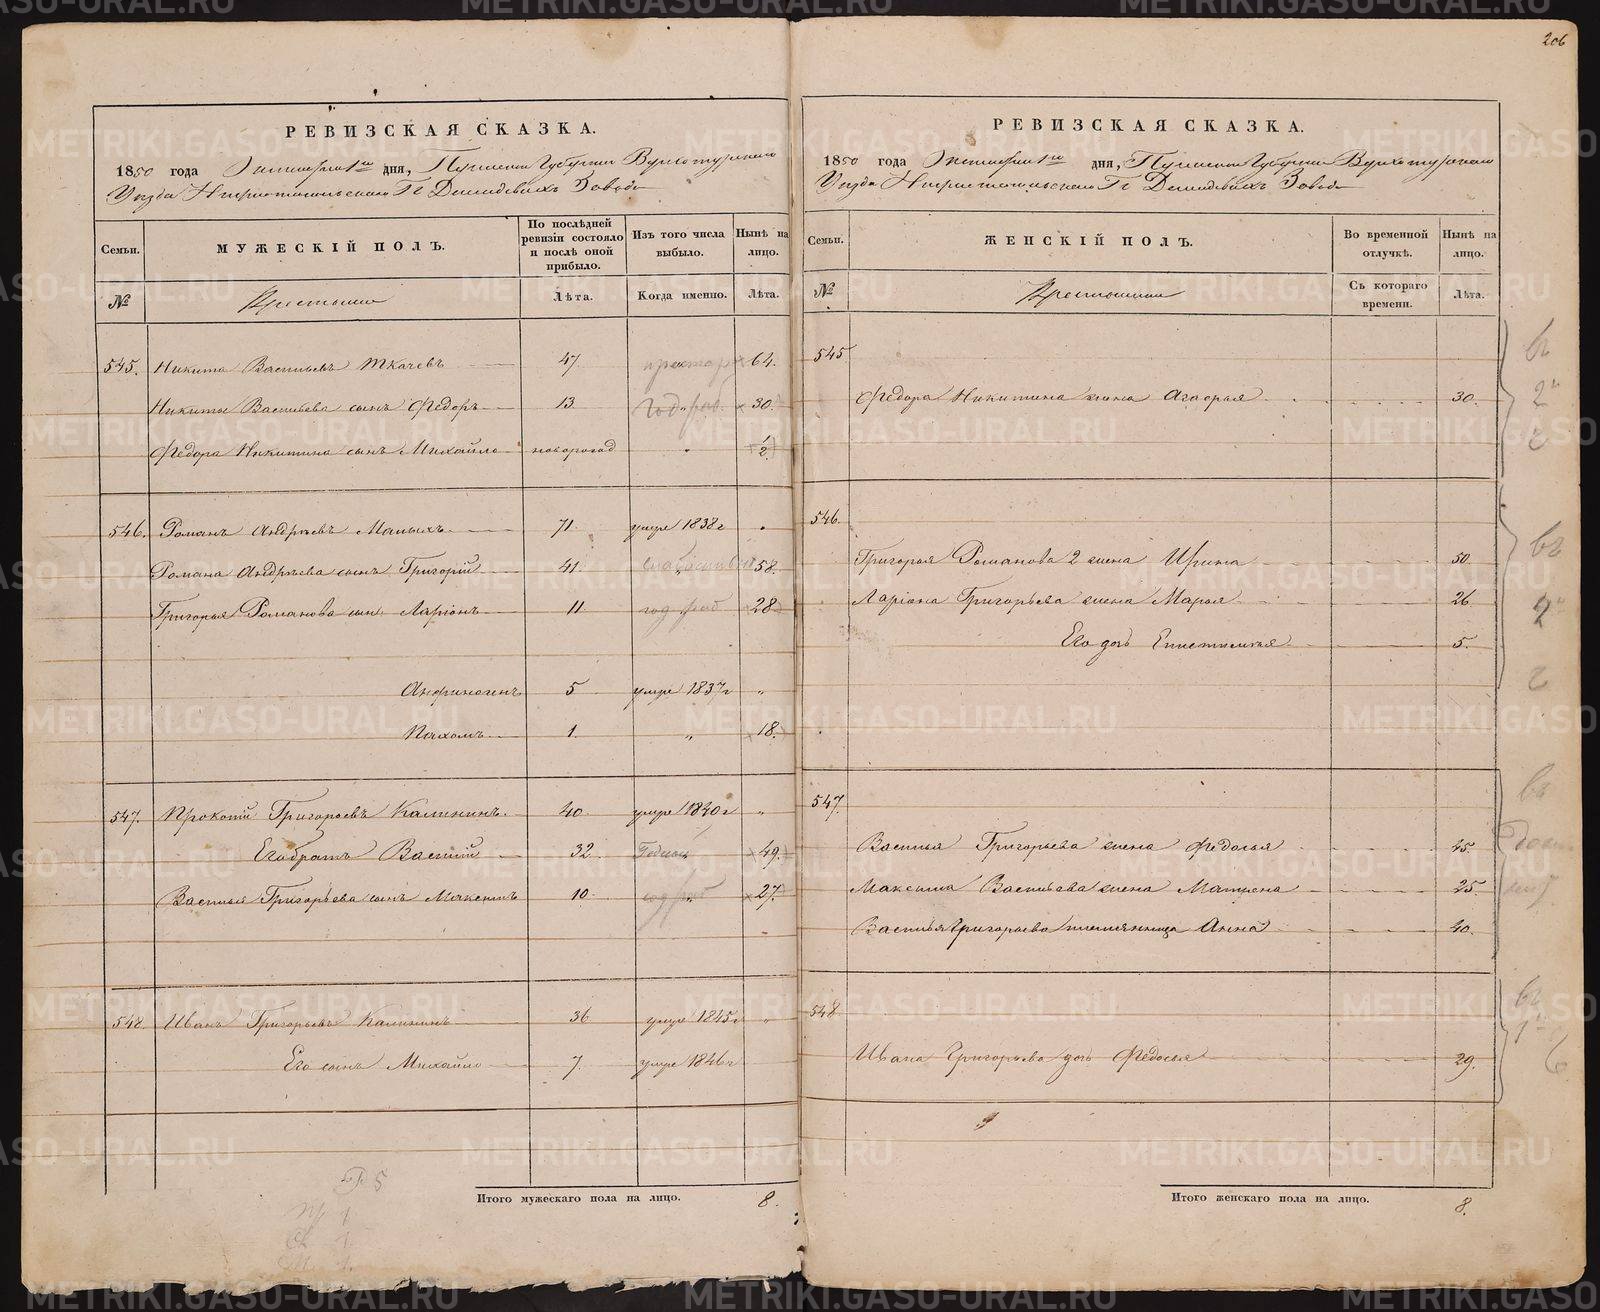 206
РЕВИЗСКАЯ СКАЗКА.
1850 года Октября 1го дня, Пермской Губернии Верхотурскаго
Уезда Нижнотагильскаго Гг Демидовыхъ Завода
Семьи. МУЖЕСКІЙ ПОЛЪ. По послѣдней ревизіи состояло и послѣ оной прибыло. Изъ того числа выбыло. Нынѣ на лицо.
№ Крестьяне Лѣта. Когда именно. Лѣта.
545. Никита Васильевъ Ткачевъ 47. престар 64.
Никиты Васильева сынъ Федоръ 13. год. раб. 30.
Федора Никитина сынъ Михайло новорожд " 1/2
546. Романъ Андрѣевъ Малыхъ 71. умре 1838г "
Романа Андрѣева сынъ Григорій 41. " 58.
Григорья Романова сынъ Ларіонъ 11 год раб 28
Анфиногенъ 5 умре 1837г "
Пахомъ 1. " 18.
547. Прокопій Григорьевъ Калининъ. 40. умре 1840г "
Его братъ Василій 32. 49.
Василья Григорьева сынъ Максимъ 10. год раб 27.
548. Иванъ Григорьевъ Калининъ 36 умре 1845г "
Его сынъ Михайло 7. умре 1846г
Итого мужескаго пола на лицо. 8.
РЕВИЗСКАЯ СКАЗКА.
1850 года Октября 1го дня, Пермской Губернии Верхотурскаго
Уезда Нижнетагильскаго Гг Демидовыхъ Завода
Семьи. ЖЕНСКІЙ ПОЛЪ. Во временной отлучкѣ. Нынѣ на лицо.
№ Крестьянки Съ котораго времени. Лѣта.
545
Федора Никитина жена Агафья 30.
546.
Григорья Романова 2 жена Ирина 50.
Ларіона Григорьева жена Марья 26.
Его дочь Епистимья 5.
547.
Василья Григорьева жена Федосья 45.
Максима Васильева жена Матрена 25.
Василья Григорьева племянница Анна 40.
548.
Ивана Григорьева дочь Федосья 29.
Итого женскаго пола на лицо. 8.
METRIKI.GASO-URAL.RU